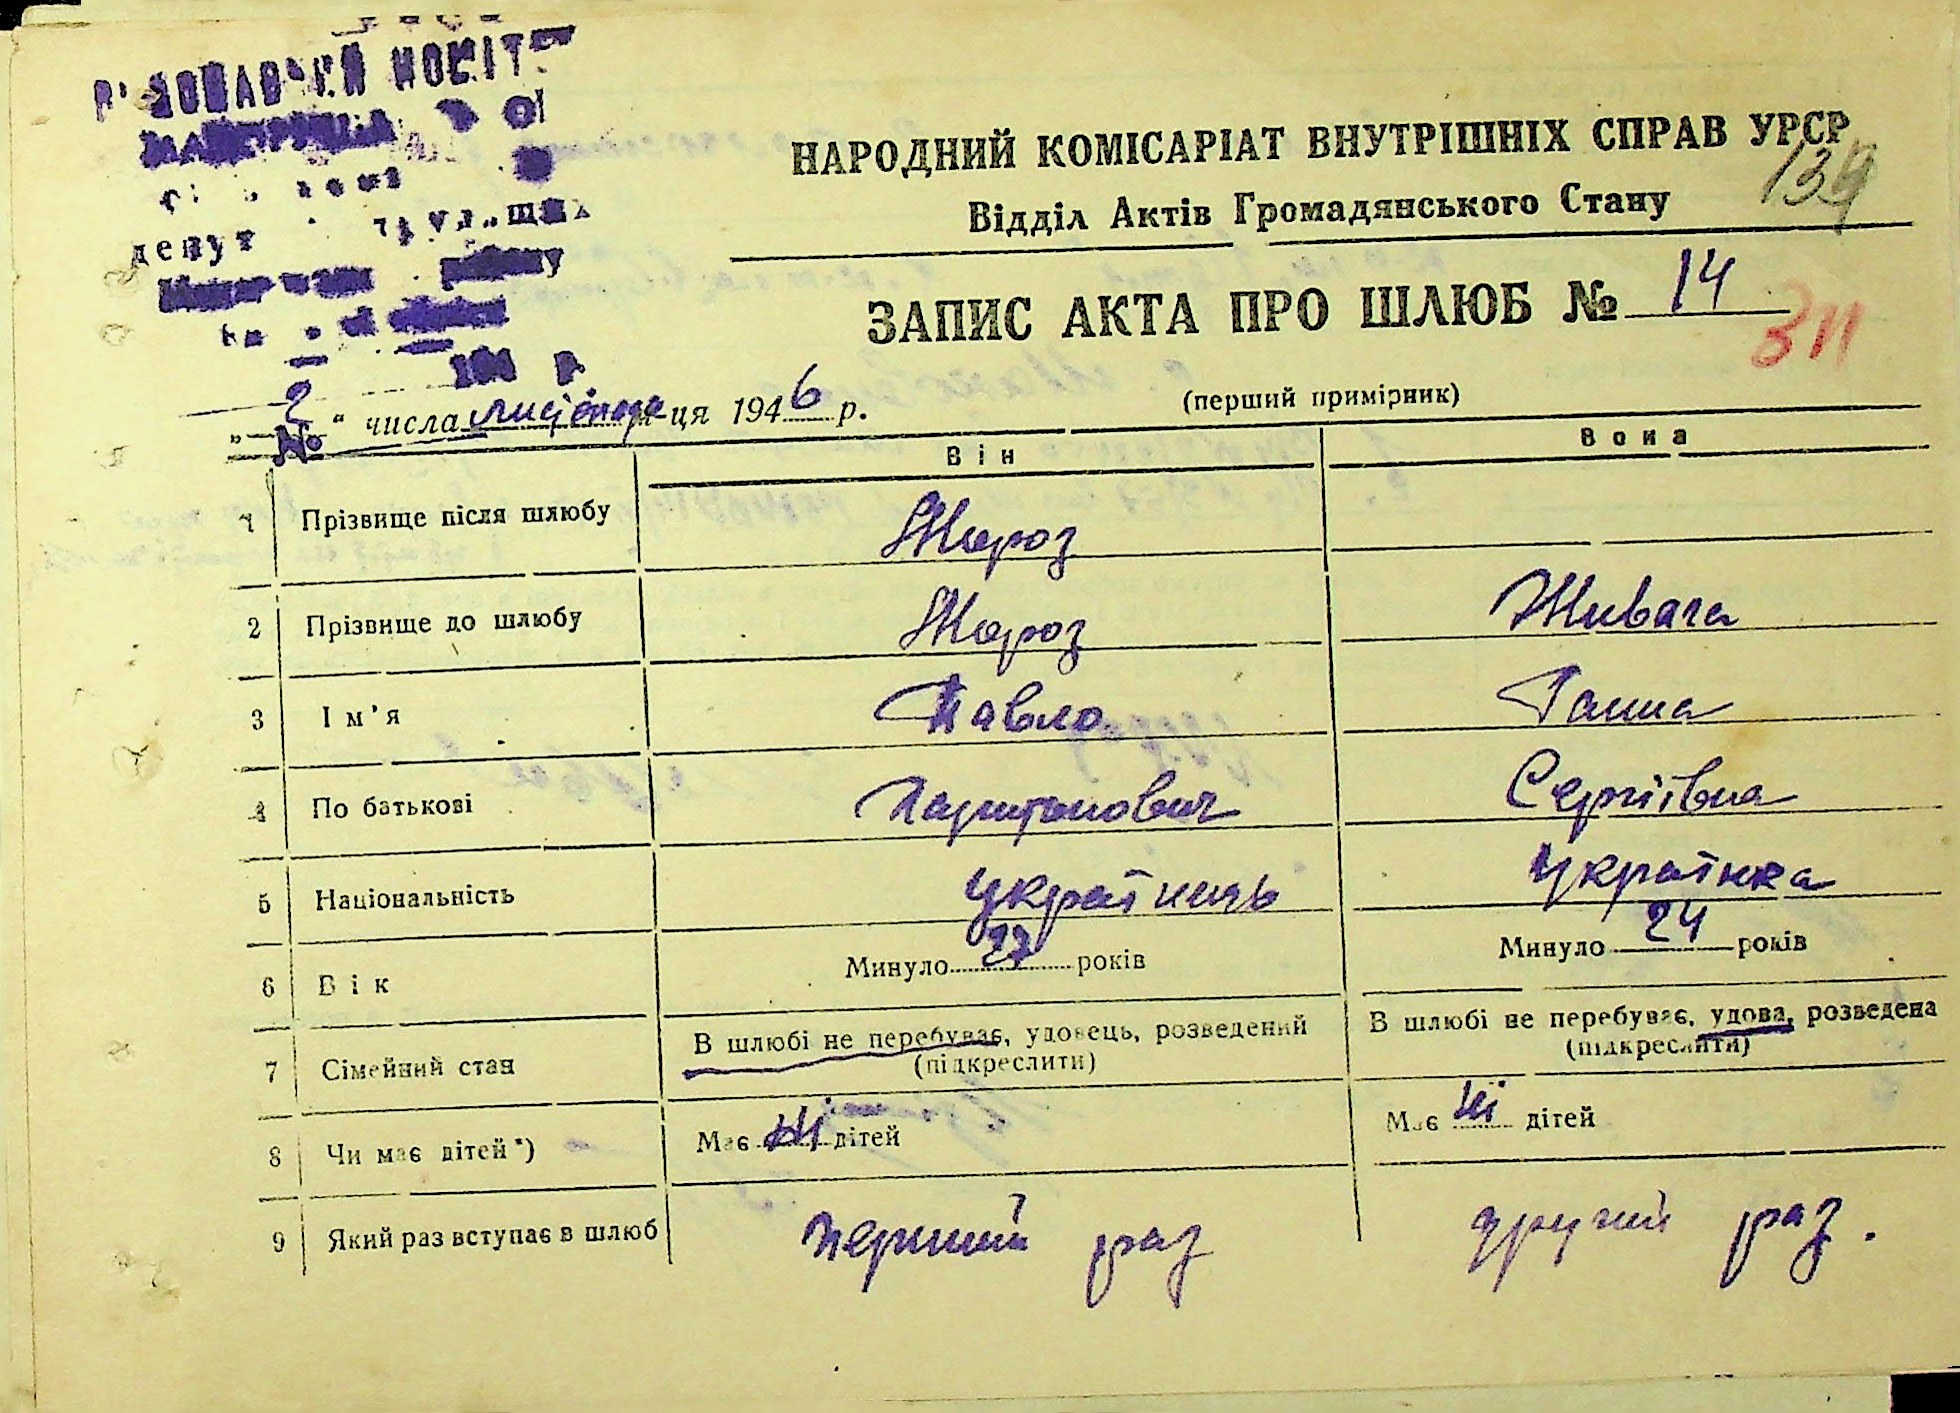 НАРОДНИЙ КОМІСАРІАТ ВНУТРІШНІХ СПРАВ УРСР
134
Відділ Актів Громадянського Стану
ЗАПИС АКТА ПРО ШЛЮБ № 14
311
"2" числа листопада м-ця 1946 р.
(перший примірник)
№
Він Вона
1 Прізвище після шлюбу Мороз
2 Прізвище до шлюбу Мороз
3 Ім'я Павло Ганна
4 По батькові Харитонович Сергіївна
5 Національність Українець Українка
6 Вік Минуло 27 років Минуло 24 років
7 Сімейний стан В шлюбі не перебуває, удовець, розведений (підкреслити) В шлюбі не перебуває, удова, розведена (підкреслити)
8 Чи має дітей *) Має ні дітей Має ні дітей
9 Який раз вступає в шлюб перший раз другий раз.